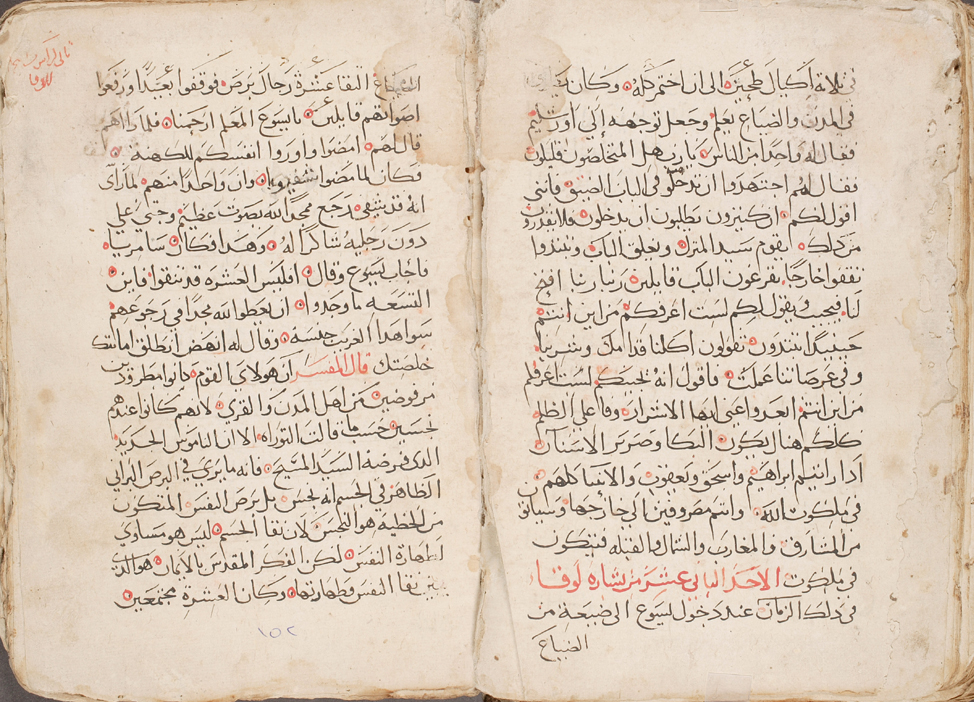 في ثلاثة اكيال طحين الى ان اختمر كله وكان
في المدن والضياع يعلم وجعل توجهه الى اورشليم
فقال له واحدا من الناس يا رب هل المتخلصون قليلون
فقال لهم اجتهدوا ان تدخلو في الباب الضيق فانني
اقول لكم ان كثيرون يطلبون ان يدخلون فلا يقدرون
من ذلك يقوم سيد المنزل ويغلق الباب وتبتدوا
تقفوا خارجا بقرعون الباب قايلين ربنا ربنا افتح
لنا فيجيب ويقول لكم لست اعرفكم من اين انتم
حينيدا تبتدون تقولون اكلنا قدامك وشربنا
وفي عرصاتنا علمت فاقول انه يجيبكم لست اعرفكم
من اين انتم ابعدوا عني ايها الاشرار وفاعلي الظلم
كلكم هناك يكون البكا وصرير الاسنان
ادا رايتم ابراهيم واسحق ويعقوب والانبيا كلهم
في ملكوت الله وانتم مصروفين الى خارجها وسياتو
من المشارق والمغارب والشمال والقبله فيتكون
في ملكوت الاحد الثاني عشر من بشاره لوقا
في ذلك الزمان عند دخول ليسوع الى ضيعة من
الضياع
ثاني كراس
للوقا
الضياع التقا عشرة رجال برص فوقفوا بعيدا ورفعوا
اصواتهم قايلين يا يسوع المعلم ارحمنا فلما راهم
قال لهم امضوا واوروا انفسكم للكهنة
فكان لما مضوا وان واحدا منهم لما راى
انه قد شفي رجع ممجدا لله بصوت عظيم وجثي على
دون رجليه شاكرا له وهدا فكان سامريا
فاجاب ليسوع وقال افليس العشره قد تنقوا فاين
التسعه ما وجدوا ان يعطوا لله مجدا في رجوعهم
سوا هدا الغريب جنسه وقال له انهض انطلق امانتك
خلصتك قال المفسر ان هولاي القوم كانوا مطرودين
مرفوضين من اهل المدن والقرى لانهم كانوا عندهم
نجسين حسب ما قالت التوراه الا ان الناموس الجديد
الدي فرضه السيد المسيح فانه ما يرى في البرص البراني
الظاهر في الجسم انه نجس بل برص النفس المتكون
من الخطية هو النجس لان نقا الجسم ليس هو مساوي
لطهارة النفس لكن الفكر المقدس بالايمان هو الدي
يبين نقا النفس وطهارتها وكان العشرة مجتمعين
١٥٢